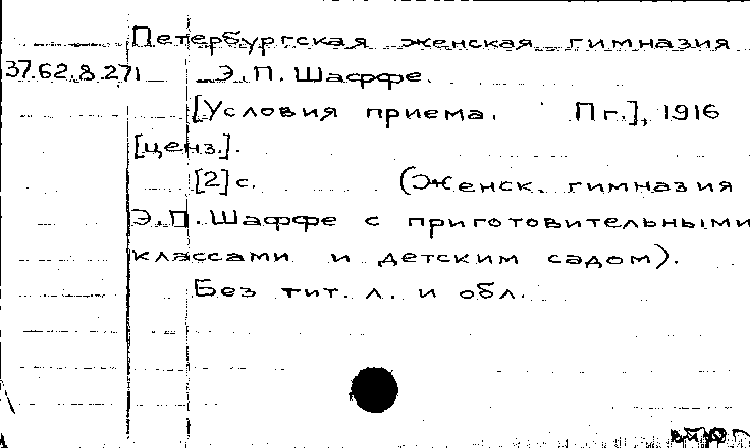 Петербургская женская гимназия
37.62.8.271 Э.П. Шаффе.
[Условия приема. Пг.], 1916
[ценз.].
[2] с. (Женск. гимназия
Э.П. Шаффе с приготовительными
классами и детским садом).
Без тит. л. и обл.